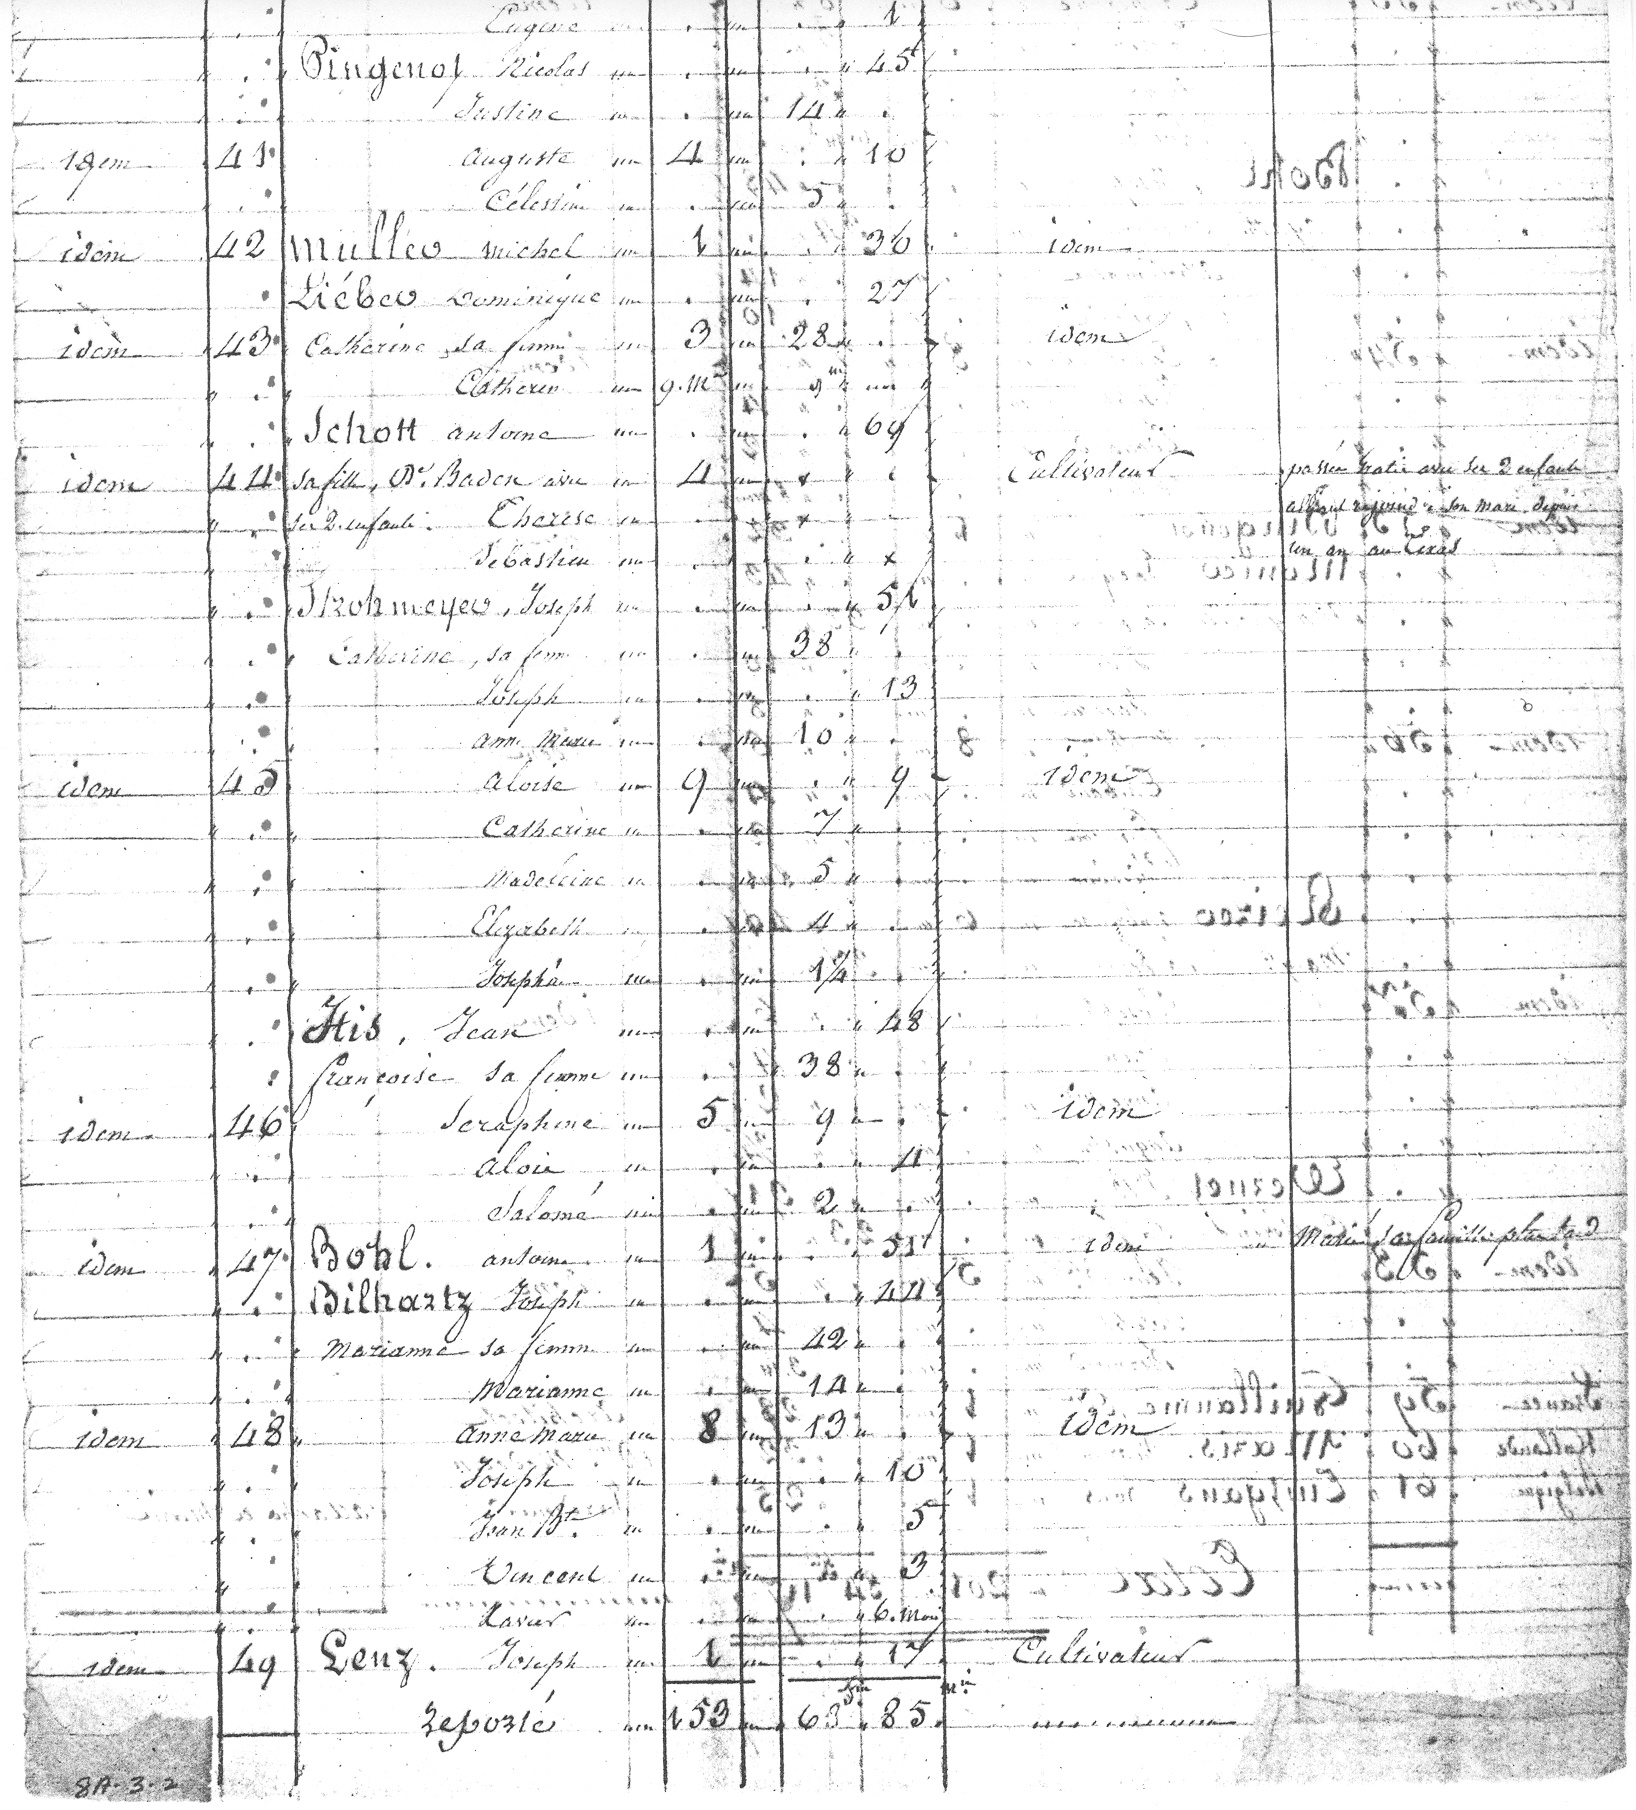 Eugène 1
Pingenot Nicolas 45
Justine 14
idem 41 auguste 4 10
Célestine 5
idem 42 Muller michel 1 36 idem
Liéber Dominique 27
idem 43 Catherine, sa femme 3 28 idem
Catherin 9. Ms 9 m
Schott antoine 69
idem 44 sa fille, De. Baden avec 4 x Cultivateur passée gratis avec ses 2 enfants
ses 2 enfants. Thérèse x allant rejoindre son mari depuis
Sébastien x un an au Texas
Strohmeyer, Joseph 51
Catherine, sa femme 38
Joseph 13
anne Marie 10
idem 45 aloise 9 9 idem
Catherine 7
Madeleine 5
Elizabeth 4
Joséphà 1½
Itis, Jean 48
françoise sa femme 38
idem 46 Seraphine 5 9 idem
aloir 4
Salomé 2
idem 47 Bohl. antoine 1 51 idem Marié, sa famille plus tard
Bilhartz Joseph 44
Marianne sa femme 42
Marianne 14
idem 48 anne Marie 8 13 idem
Joseph 10
Jean Bte. 5
Vincent 3
Xavier 6. Mois
idem 49 Lenz. Joseph 1 17 Cultivateur
reporté 153 68 85
8A-3-2